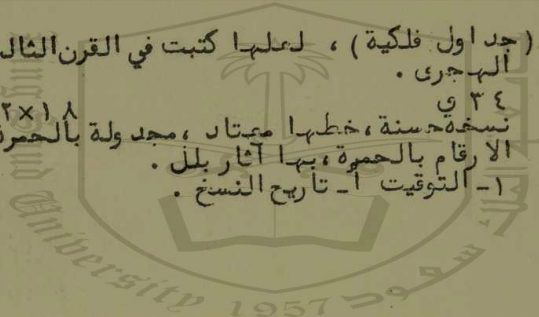 (جداول فلكية)، لعلها كتبت في القرن الثال
الهجرى.
٣٤ ق
١٨×٢
نسخة حسنة، خطها معتاد، مجدولة بالحمرة
الارقام بالحمرة، بها آثار بلل.
١- التوقيت أ- تاريخ النسخ.
University 1957